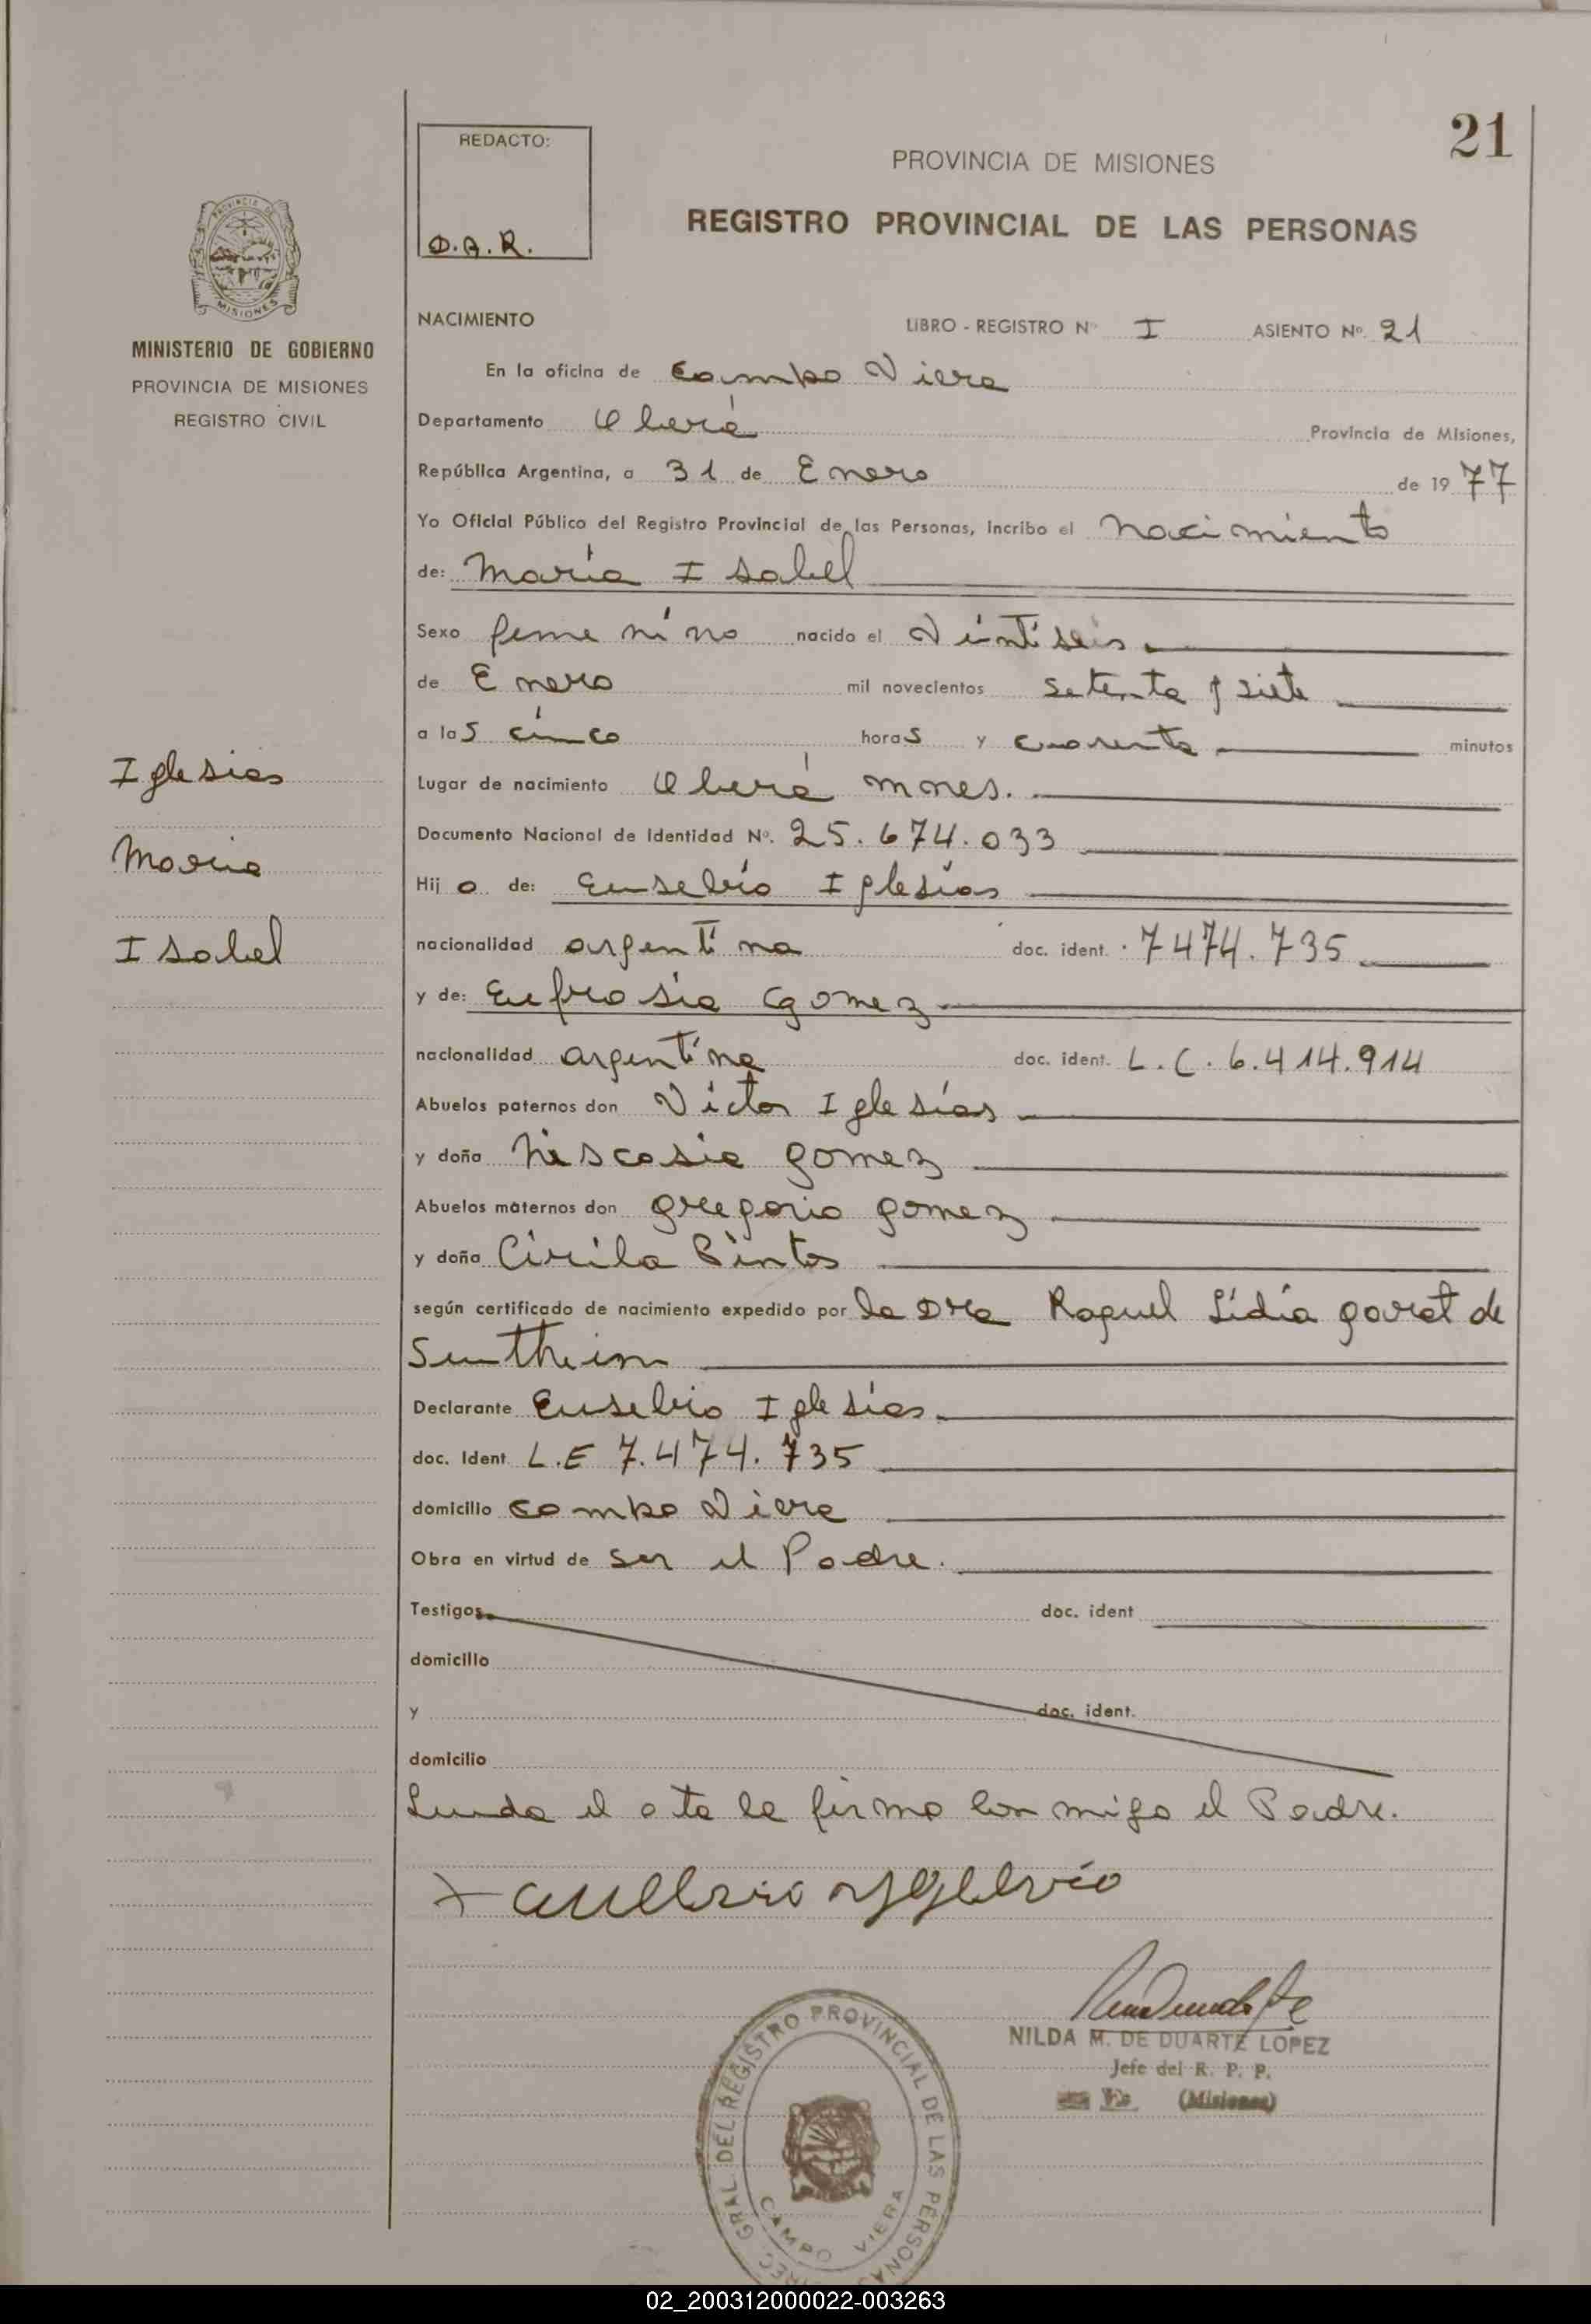 21
REDACTO:
O.A.R.
PROVINCIA DE MISIONES
REGISTRO PROVINCIAL DE LAS PERSONAS
PROVINCIA DE
MISIONES
MINISTERIO DE GOBIERNO
PROVINCIA DE MISIONES
REGISTRO CIVIL
Iglesias
Maria
Isabel
NACIMIENTO LIBRO - REGISTRO Nº I ASIENTO Nº 21
En la oficina de Campo Viera
Departamento Oberá Provincia de Misiones,
República Argentina, a 31 de Enero de 1977
Yo Oficial Público del Registro Provincial de las Personas, incribo el nacimiento
de: María Isabel
Sexo femenino nacido el Veintiseis
de Enero mil novecientos setenta y siete
a las cinco horas y cuarenta minutos
Lugar de nacimiento Oberá Mnes.
Documento Nacional de Identidad Nº. 25.674.033
Hij a de: Eusebio Iglesias
nacionalidad argentina doc. ident. 7474.735
y de: Eufrosia Gomez
nacionalidad argentina doc. ident. L.C. 6.414.914
Abuelos paternos don Victor Iglesias
y doña Niscasia Gomez
Abuelos maternos don Gregorio Gomez
y doña Cirila Pintos
según certificado de nacimiento expedido por la Dra Raquel Lidia de
Declarante Eusebio Iglesias
doc. Ident. L.E 7.474.735
domicilio Campo Viera
Obra en virtud de ser el Padre.
Testigos doc. ident
domicilio
y doc. ident.
domicilio
el acta la firma conmigo el Padre.
NILDA M. DE DUARTE LOPEZ
Jefe del R. P. P.
(Misiones)
DIREC. GRAL. DEL REGISTRO PROVINCIAL DE LAS PERSONAS
CAMPO VIERA
02_200312000022-003263